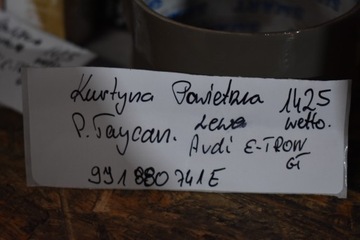 Kurtyna Powietrza 1425
P. Taycan. Lewa netto.
Audi E-TRON GT
9J1 880 741E